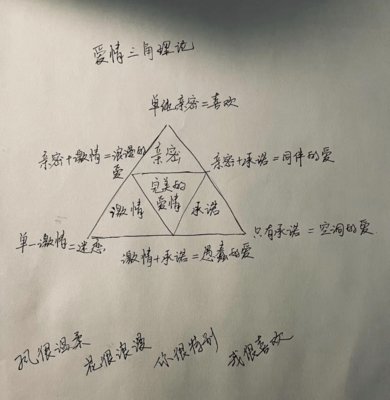 爱情三角理论
单纯亲密=喜欢
亲密+激情=浪漫的爱
亲密
亲密+承诺=同伴的爱
完美的
爱情
激情
承诺
单一激情=迷恋
激情+承诺=愚蠢的爱
只有承诺=空洞的爱
风很温柔
花很浪漫
你很特别
我很喜欢